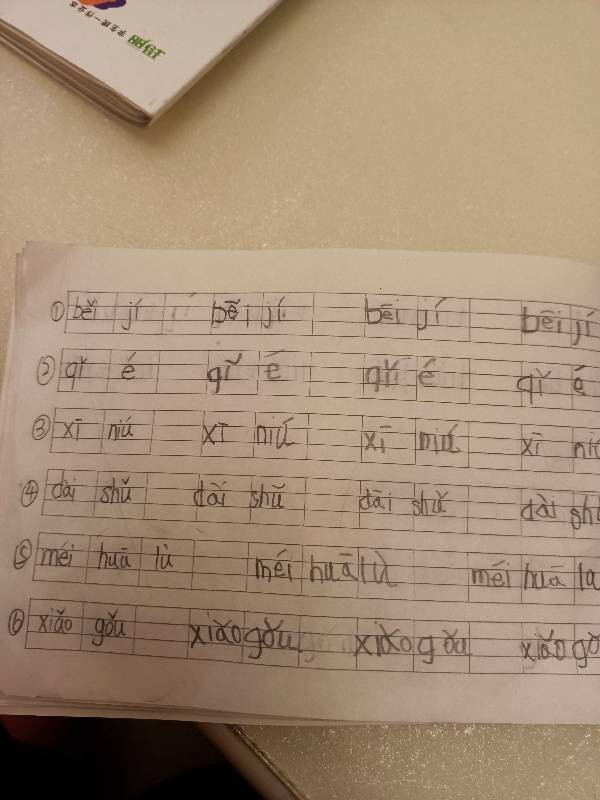 学生统一作业本
① běi jí běi jí bēi jí bēi jí
② qǐ é qǐ é qǐ é qǐ é
③ xī niú xī niú xī niú xī
④ dài shǔ dài shǔ dāi shǔ dài
⑤ méi huā lù méi huā lù méi huā
⑥ xiǎo gǒu xiǎo gǒu xiǎo gǒu xiǎo